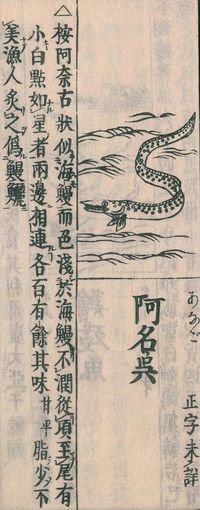 あなご
正字未詳
阿名吳
△按阿奈古狀似海鰻而色淺於海鰻不潤從項至尾有
小白點如星者兩邊相連各百有餘其味甘平脂少不
美漁人炙之僞鰻鱺